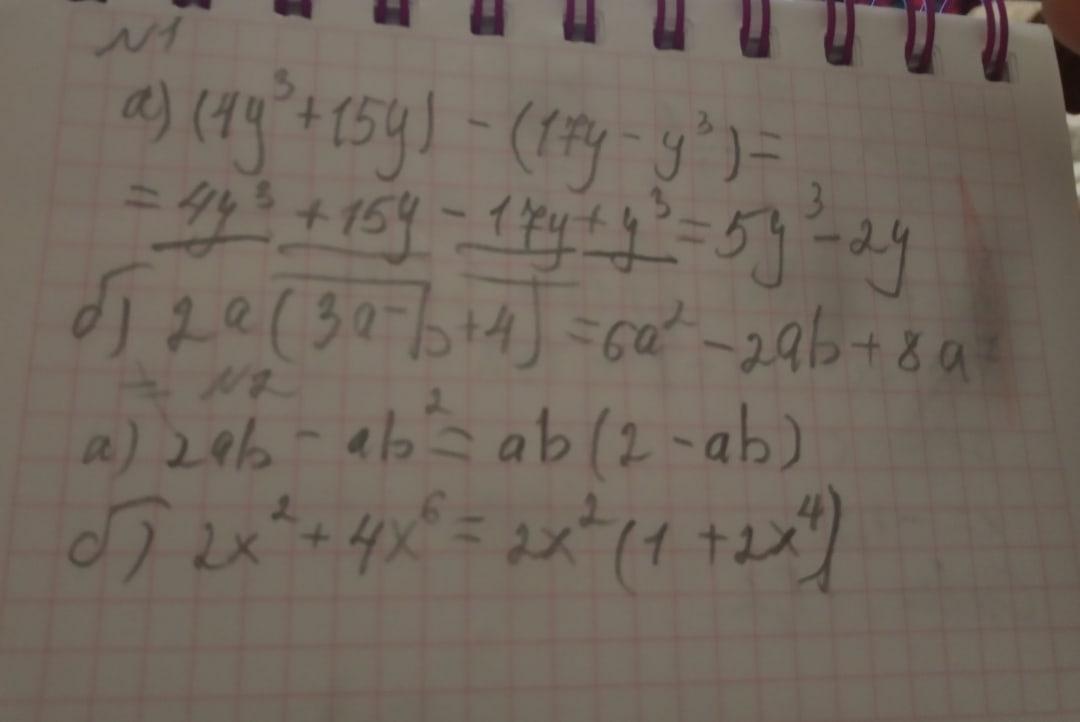 №1
а) (4y³+15y) - (17y - y³) =
= 4y³ + 15y - 17y + y³ = 5y³ - 2y
б) 2a(3a - b + 4) = 6a² - 2ab + 8a
= №2
а) 2ab - ab² = ab(2 - ab)
б) 2x² + 4x⁶ = 2x²(1 + 2x⁴)